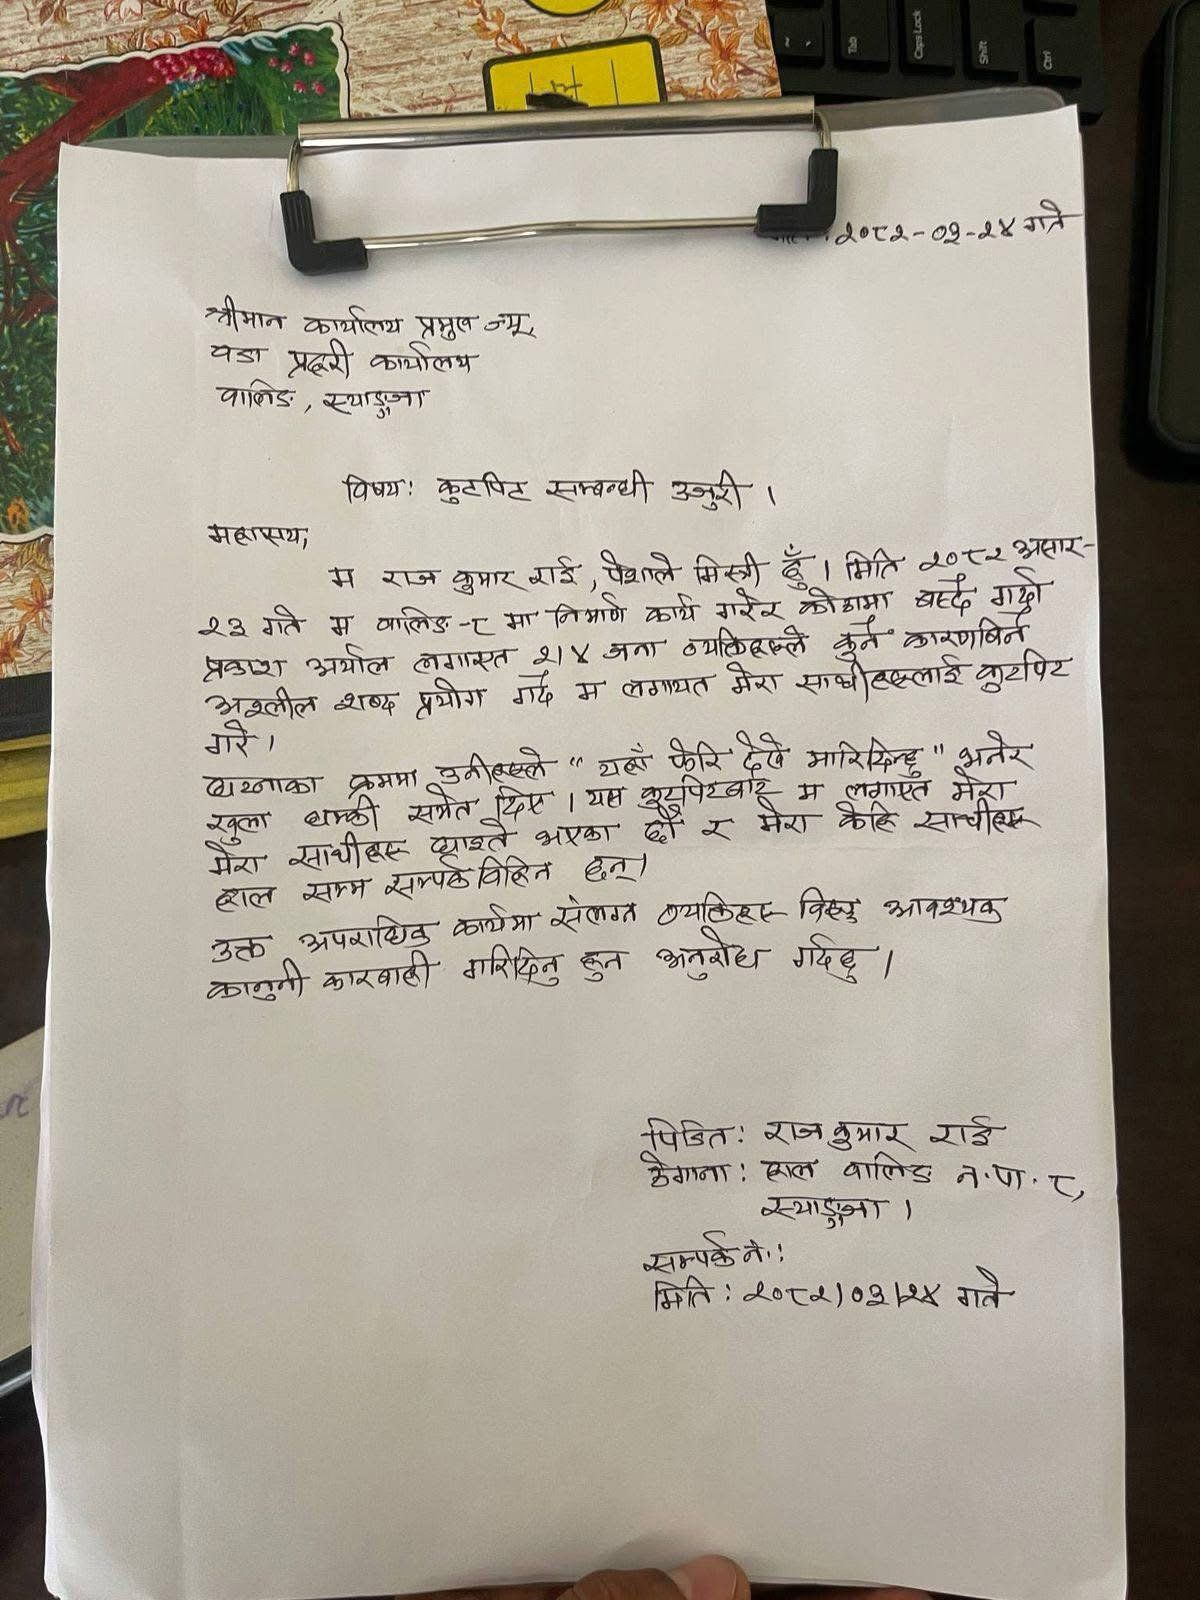 ~
Tab
Caps Lock
Shift
Ctrl
२०८२-०३-२४ गते
श्रीमान कार्यालय प्रमुख ज्यू,
वडा प्रहरी कार्यालय
वालिङ, स्याङ्जा
विषय: कुटपिट सम्बन्धी उजुरी ।
महासय,
म राज कुमार राई, पेशाले मिस्त्री हुँ । मिति २०८२ असार-
२३ गते म वालिङ-८ मा निर्माण कार्य गरेर कोठामा बस्दै गर्दा
प्रकाश अर्याल लगाएत २।४ जना व्यक्तिहरूले कुनै कारणबिनै
अश्लील शब्द प्रयोग गर्दै म लगायत मेरा साथीहरूलाई कुटपिट
गरे ।
घटनाका क्रममा उनीहरूले "यहाँ फेरि देखे मारिदिन्छु" भनेर
खुला धम्की समेत दिए । यस कुटपिटबाट म लगाएत मेरा
मेरा साथीहरू घाइते भएका छौं र मेरा केहि साथीहरू
हाल सम्म सम्पर्कविहिन छन् ।
उक्त अपराधिक कार्यमा संलग्न व्यक्तिहरू विरूद्ध आवश्यक
कानुनी कारवाही गरिदिनु हुन अनुरोध गर्दछु ।
पिडित: राज कुमार राई
ठेगाना: हाल वालिङ न.पा. ८,
स्याङ्जा ।
सम्पर्क नं.:
मिति: २०८२/०३/२४ गते